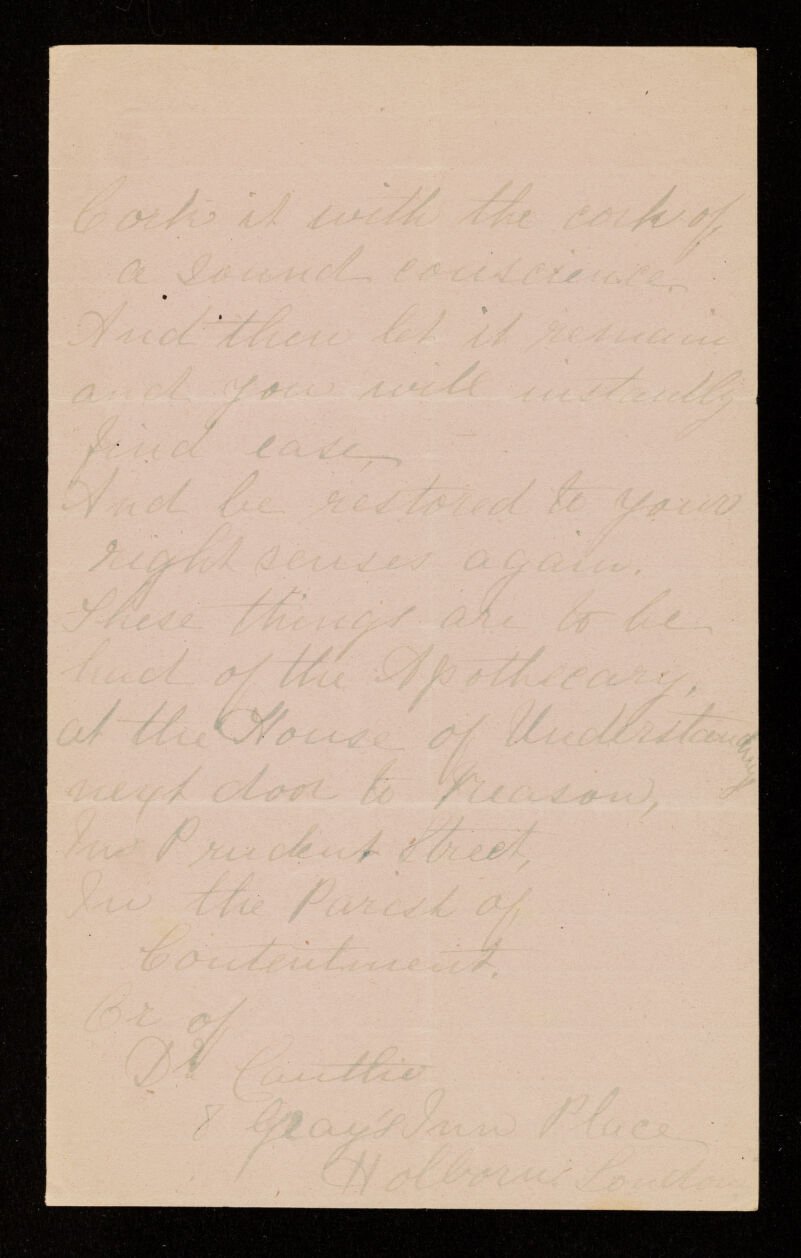 Cork it with the cork of
a sound conscience.
And then let it remain
and you will instantly
find ease,
And be restored to your
right senses again.
These things are to be
had of the Apothecary,
at the House of Understanding
next door to Reason,
In Prudent Street,
In the Parish of
Contentment.
Or of
Dr Cantlie
8 Gray's Inn Place
Holborn London